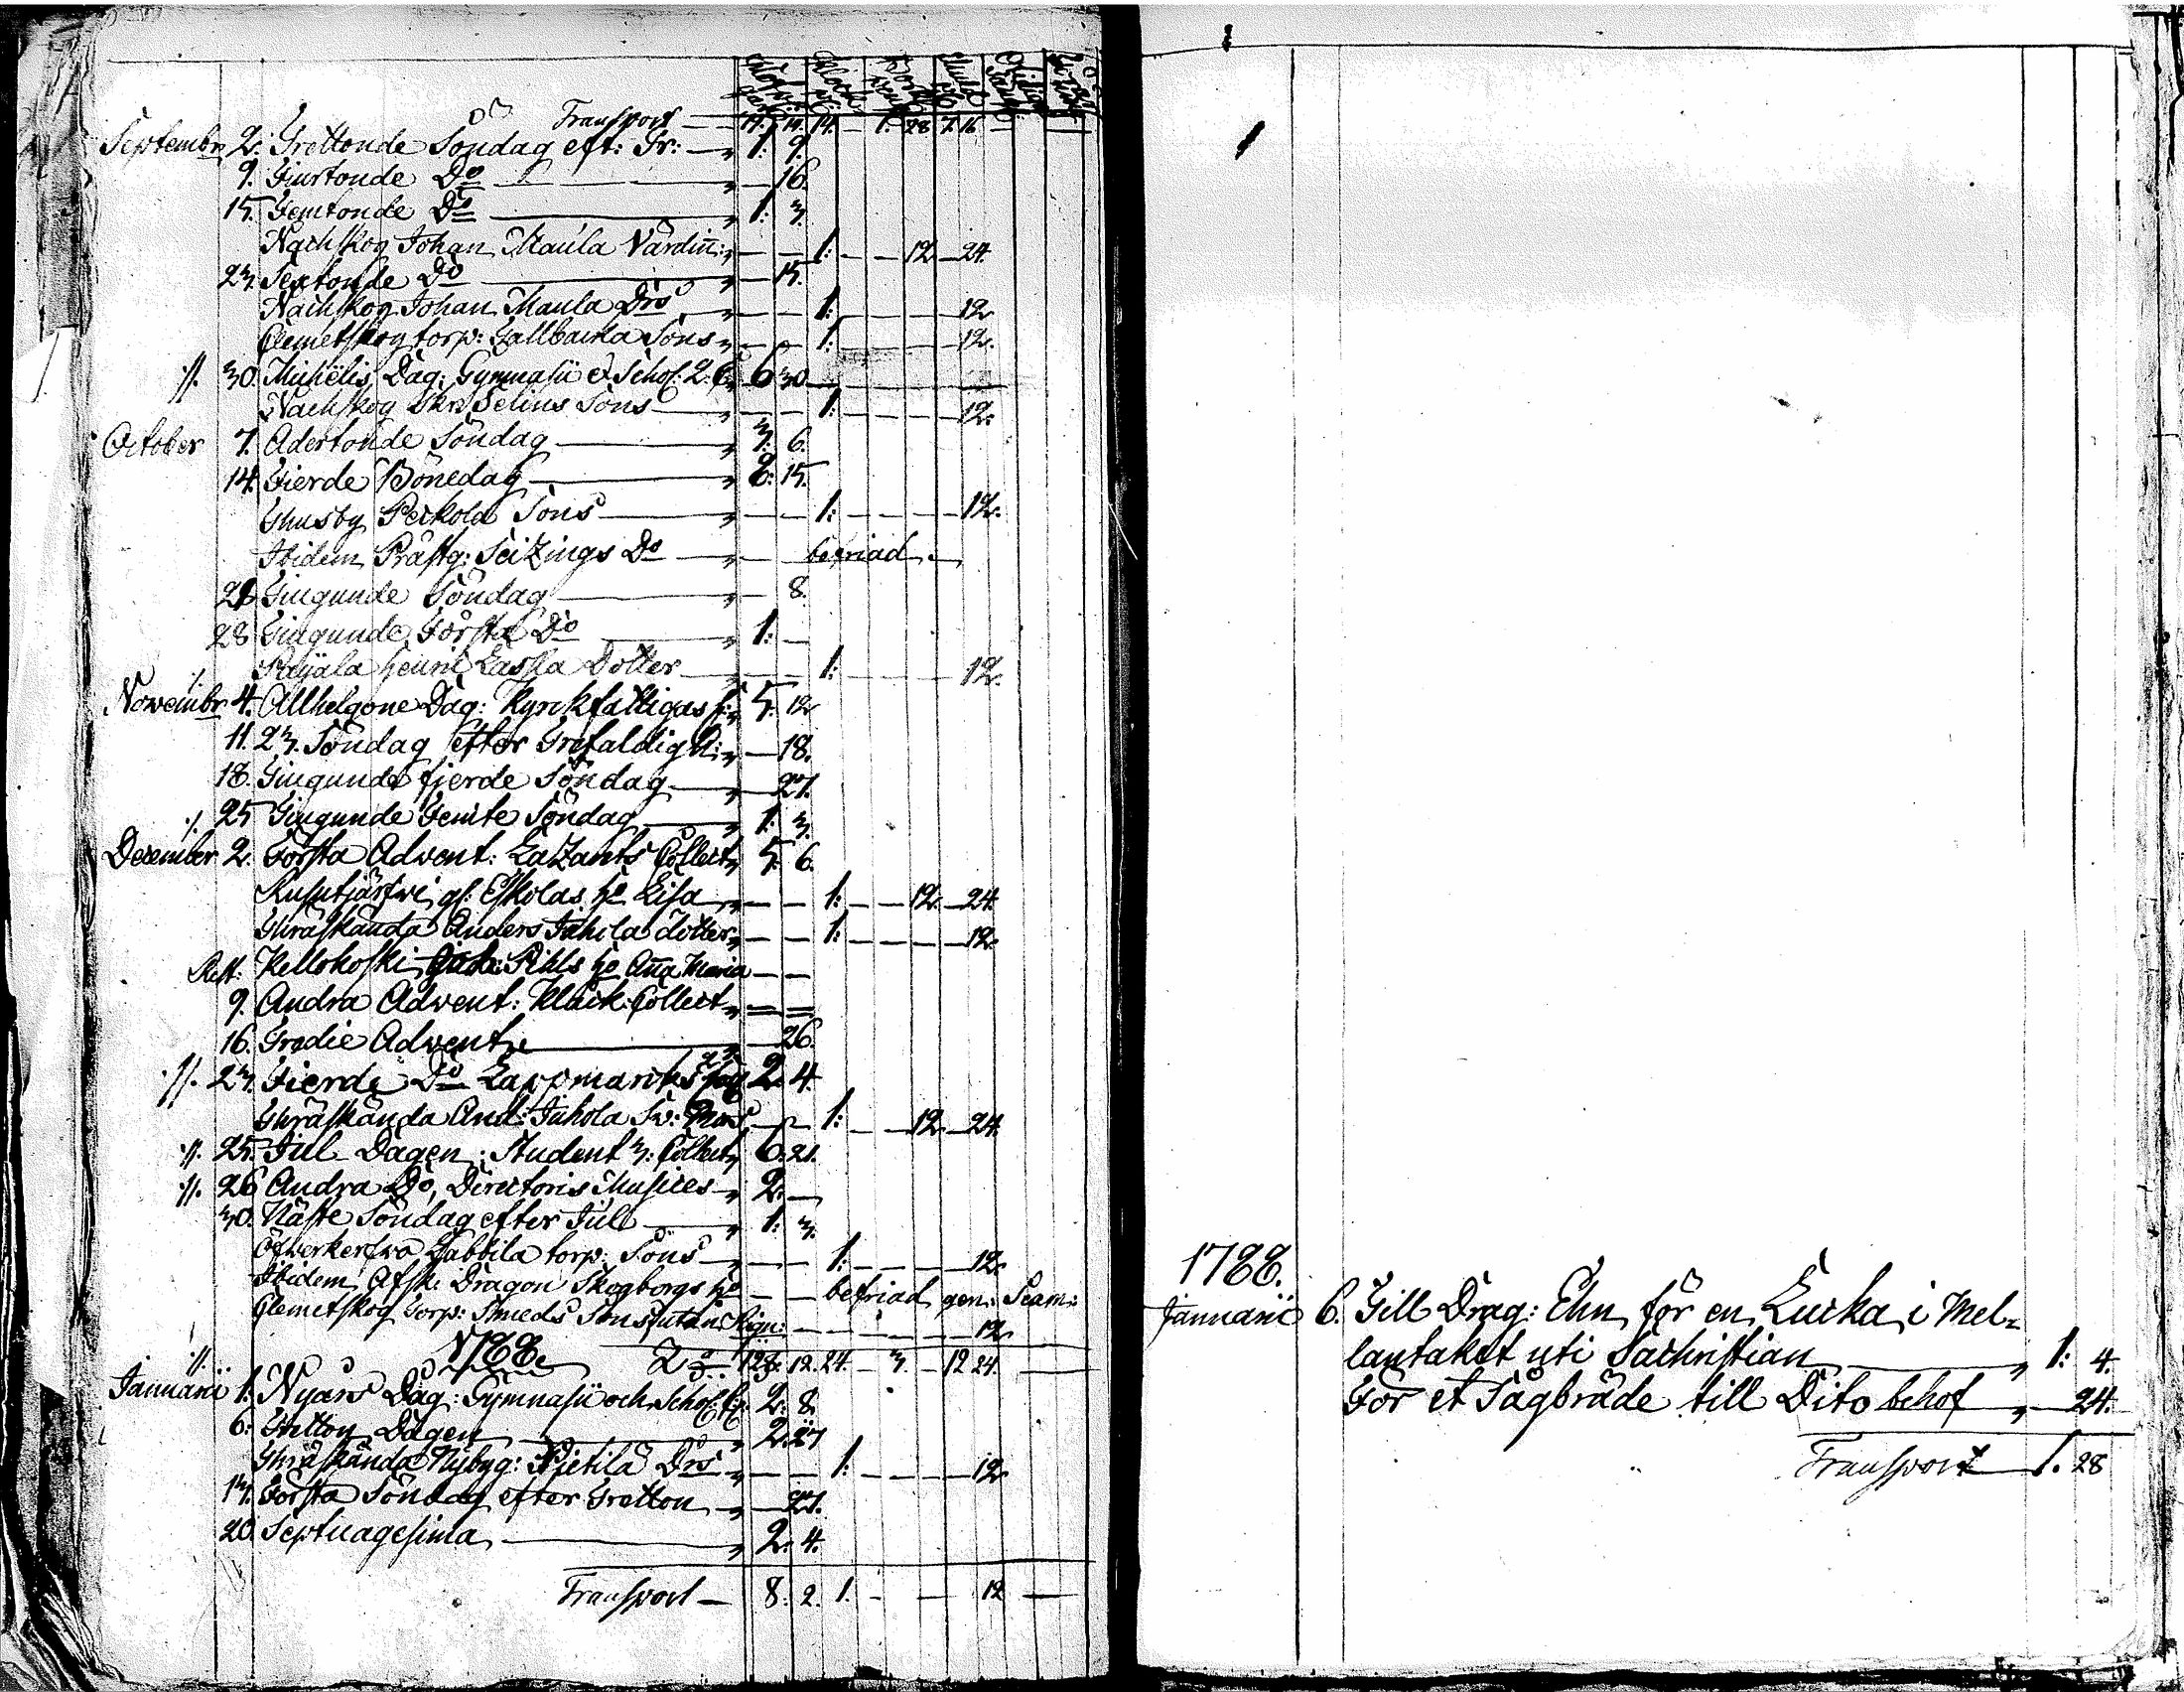 Transport — 14. — 1. 28 7. 16 —
Septembr 2. Trettonde Söndag eft: Tr: — „ 1: 9.
9. Fiurtonde Do — „ — 16.
15. Femtonde Do — „ 1: 3.
Nachskog Johan Maula Värdiñ: „ — — 1: — — 12 — 24.
23. Sextonde Do — „ — 15.
Nachskog Johan Maula Drs „ — — 1: — — — 12
Clemetskog torp: Sons „ — — 1: — — — 12.
·//. 30. Michëlis Dag: Gymnasii & Schol: 2. C. „ 6 30 —
Nachskog Selins Sons — „ — — 1: — — — 12.
October 7. Adertonde Söndag — „ 3: 6.
14. Fierde Bönedag — „ 15.
Thusby Peckola Sons — „ — — 1: — — — 12.
Ibidem Prästg: Seizings Do — „ — befriad. —
21 Tiugunde Söndag — „ — 8.
28 Tiugunde Första Do — „ 1: —
Lassa Dotter — „ — — 1: — — — 12.
Novembr 4. Allhelgone Dag: Kyrckfattigas „ 5. 12
11. 23. Söndag efter Trefaldigh: „ — 18.
18. Tiugunde fjerde Söndag — „ — 27.
·/. 25 Tiugunde Femte Söndag — „ 1: 3.
December 2. Första Advent: Lazarets Collect „ 5. 6.
Rusutjärfwi gl: Eskolas ho Lisa „ — — 1: — — 12. — 24.
Thräskända Anders Juhola dotter „ — — 1: — — — 12.
Rest. Kellokoski Pihls ho Aña Maria — —
9. Andra Advent: Klock: Collect „ — —
16. Tredie Advent. — „ — 26.
·//. 23. Fierde Do Lappmarks 2. 4.
Thräskända And: Juhola Sv: Mors — — 1: — — 12 — 24.
·//. 25. Jul Dagen: Student 3: Collect „ 6: 21.
·//. 26 Andra Do, Directoris Musices — „ 2. —
30. Näste Söndag efter Jul — „ 1: 3.
Ofverkerfwa Labbila torp: Sons — „ — — 1: — — — 12.
Ibidem Afsk. Dragon Skogborgs ho — — befriad gen:
Clemetskog Torp: Smeds Sons utan Rign: — — — — 12
1788. 12. 24. — 3. — 12 24. —
Januarii 1. Nyårs Dag: Gymnasii och Schol: C: 2. 8.
6: Tretton Dagen — „ 2: 27
Thräskända Nybyg: Pietilä Drs „ — — 1: — — — 12
13. Första Söndag efter Tretton — „ — 27.
20 Septuagesima — „ 2. 4.
Transport — 8: 2. 1. — — 12 —
1788.
Januarii 6. Till Drag: Ehn för en Lucka i Mel-
lantaket uti Sachristian — „ 1: 4.
För et Sågbräde till Dito behof — „ — 24.
Transport — 1. 28